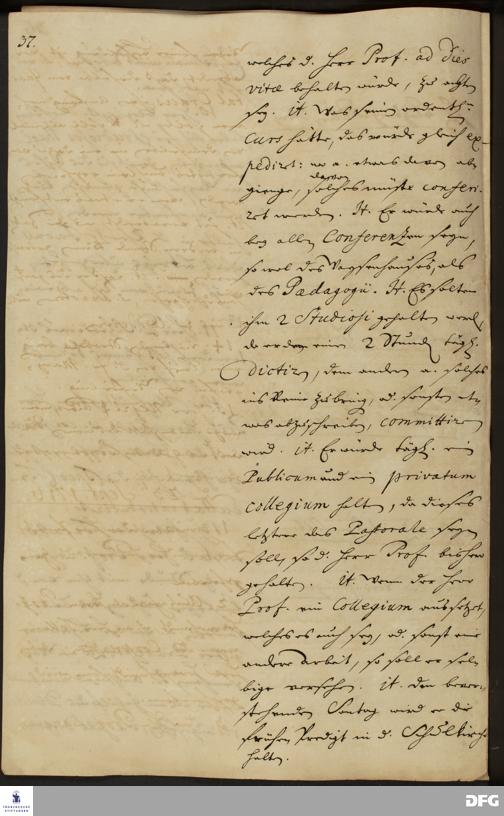 37.
welches d. Herr Prof. ad dies
vitæ behalten würde, zu
sey. it. was sein ordentl.
Curs hätte, das würde gleich ex-
pediret: wo a. etwas davon ab-
gienge, solches müste conferi-
davon
ret werden. It. Er würde auch
bey allen Conferenzen seyn,
so wol des Waysenhauses, als
des Pædagogii. It. Es solten
ihm 2 Studiosi gehalten werd.
da er dem einen 2 Stund. tägl.
Dictire, dem andern a. solches
ins Reine zubring., od. sonsten et-
was abzuschreiben, committiren
wird. it. Er würde tägl. ein
Publicum und ein privatum
collegium halten, da dieses
letztere das Pastorale seyn
soll, so d. Herr Prof. bisher
gehalten. it. Wenn der Herr
Prof. ein Collegium aussetzet,
welches es auch sey, od. sonst eine
andere Arbeit, so soll er sel-
bige versehen. it. den bevor-
stehenden Sontag wird er die
frühen Predigt in d. Schulkirch.
halten.
FRANCKESCHE STIFTUNGEN
DFG